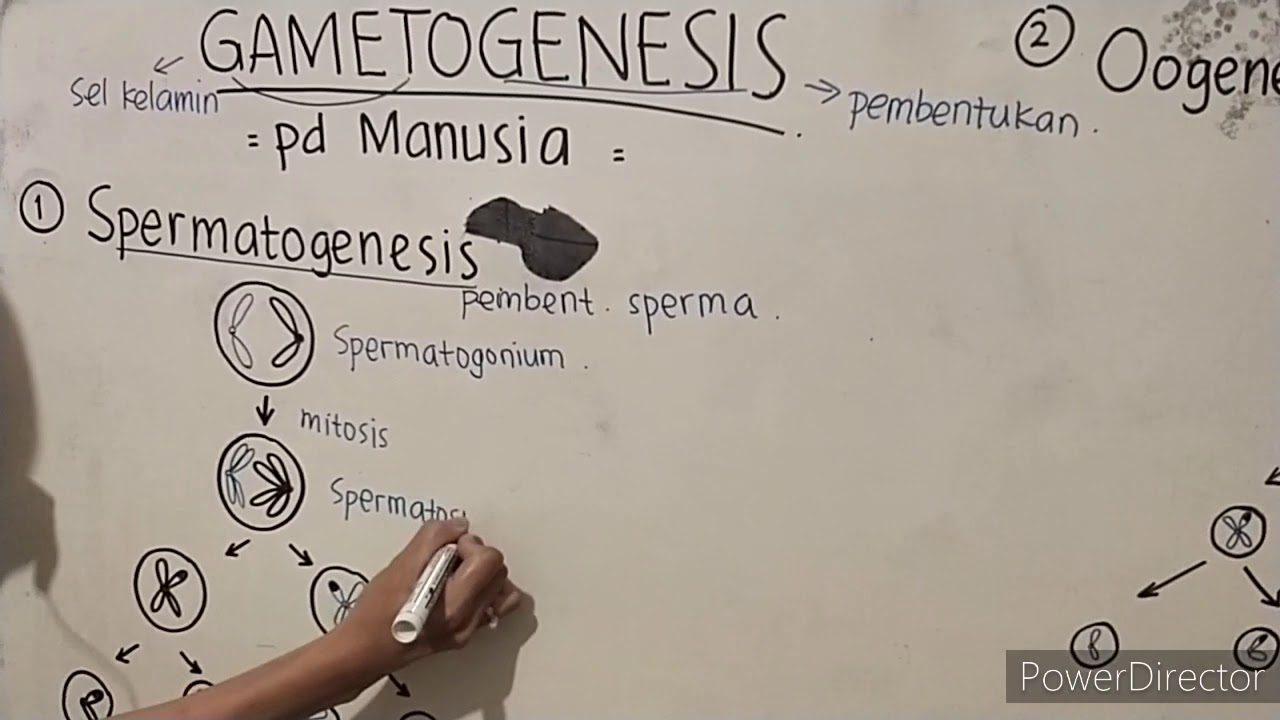 GAMETOGENESIS
Sel kelamin
pembentukan.
= pd Manusia =
1 Spermatogenesis
pembent. sperma.
Spermatogonium.
mitosis
Spermatos
2 Oogene
PowerDirector